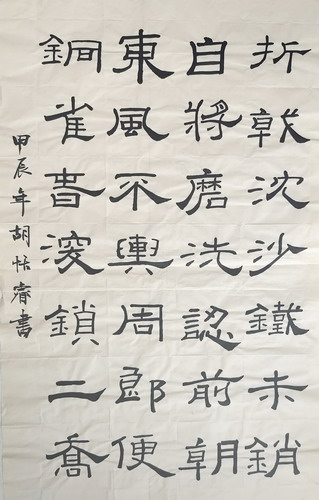 折戟沈沙鐵未銷
自將磨洗認前朝
東風不與周郎便
銅雀春深鎖二喬
甲辰年胡恬睿書